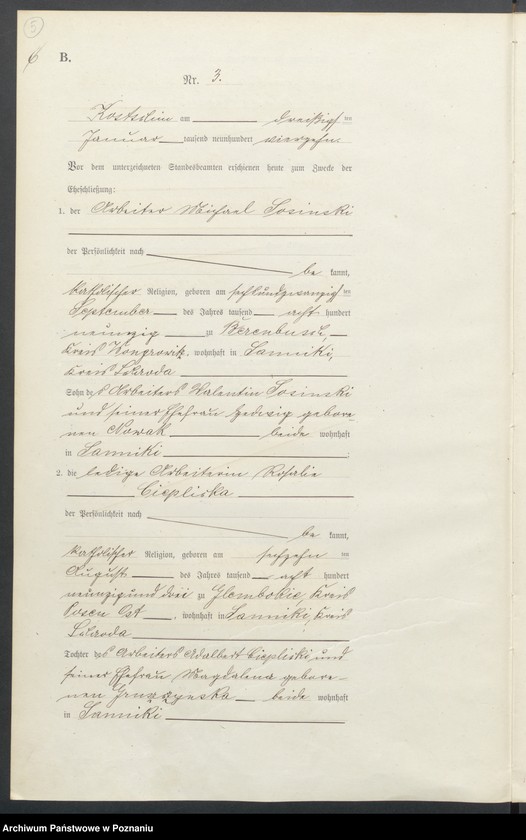 5
6
B.
Nr. 3.
Kostschin am dreißigsten
Januar tausend neunhundert vierzehn
Vor dem unterzeichneten Standesbeamten erschienen heute zum Zwecke der
Eheschließung:
1. der Arbeiter Michael Sosinski
der Persönlichkeit nach
be kannt,
katholischer Religion, geboren am sechsundzwanzigsten
September des Jahres tausend acht hundert
neunzig zu Berenbusch,
Kreis Wongrowitz, wohnhaft in Sanniki,
Kreis Schroda
Sohn des Arbeiters Valentin Sosinski
und seiner Ehefrau Hedwig gebore-
nen Nowak beide wohnhaft
in Sanniki
2. die ledige Arbeiterin Rosalie
Ciepliska
der Persönlichkeit nach
be kannt,
katholischer Religion, geboren am sechzehnten
August des Jahres tausend acht hundert
neunzigund drei zu Glembokie, Kreis
Posen Ost, wohnhaft in Sanniki, Kreis
Schroda
Tochter des Arbeiters Adalbert Ciepliski und
seiner Ehefrau Magdalena gebore-
nen beide wohnhaft
in Sanniki
Archiwum Państwowe w Poznaniu